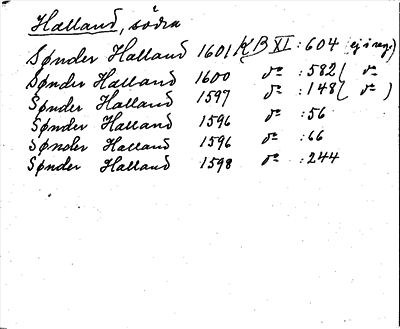 Halland, södra
Sønder Halland 1601 KB XI : 604 ej i reg.)
Sønder Halland 1600 do : 582 ( do
Sønder Halland 1597 do : 148 ( do )
Sønder Halland 1596 do : 56
Sønder Halland 1596 do : 66
Sønder Halland 1598 do : 244